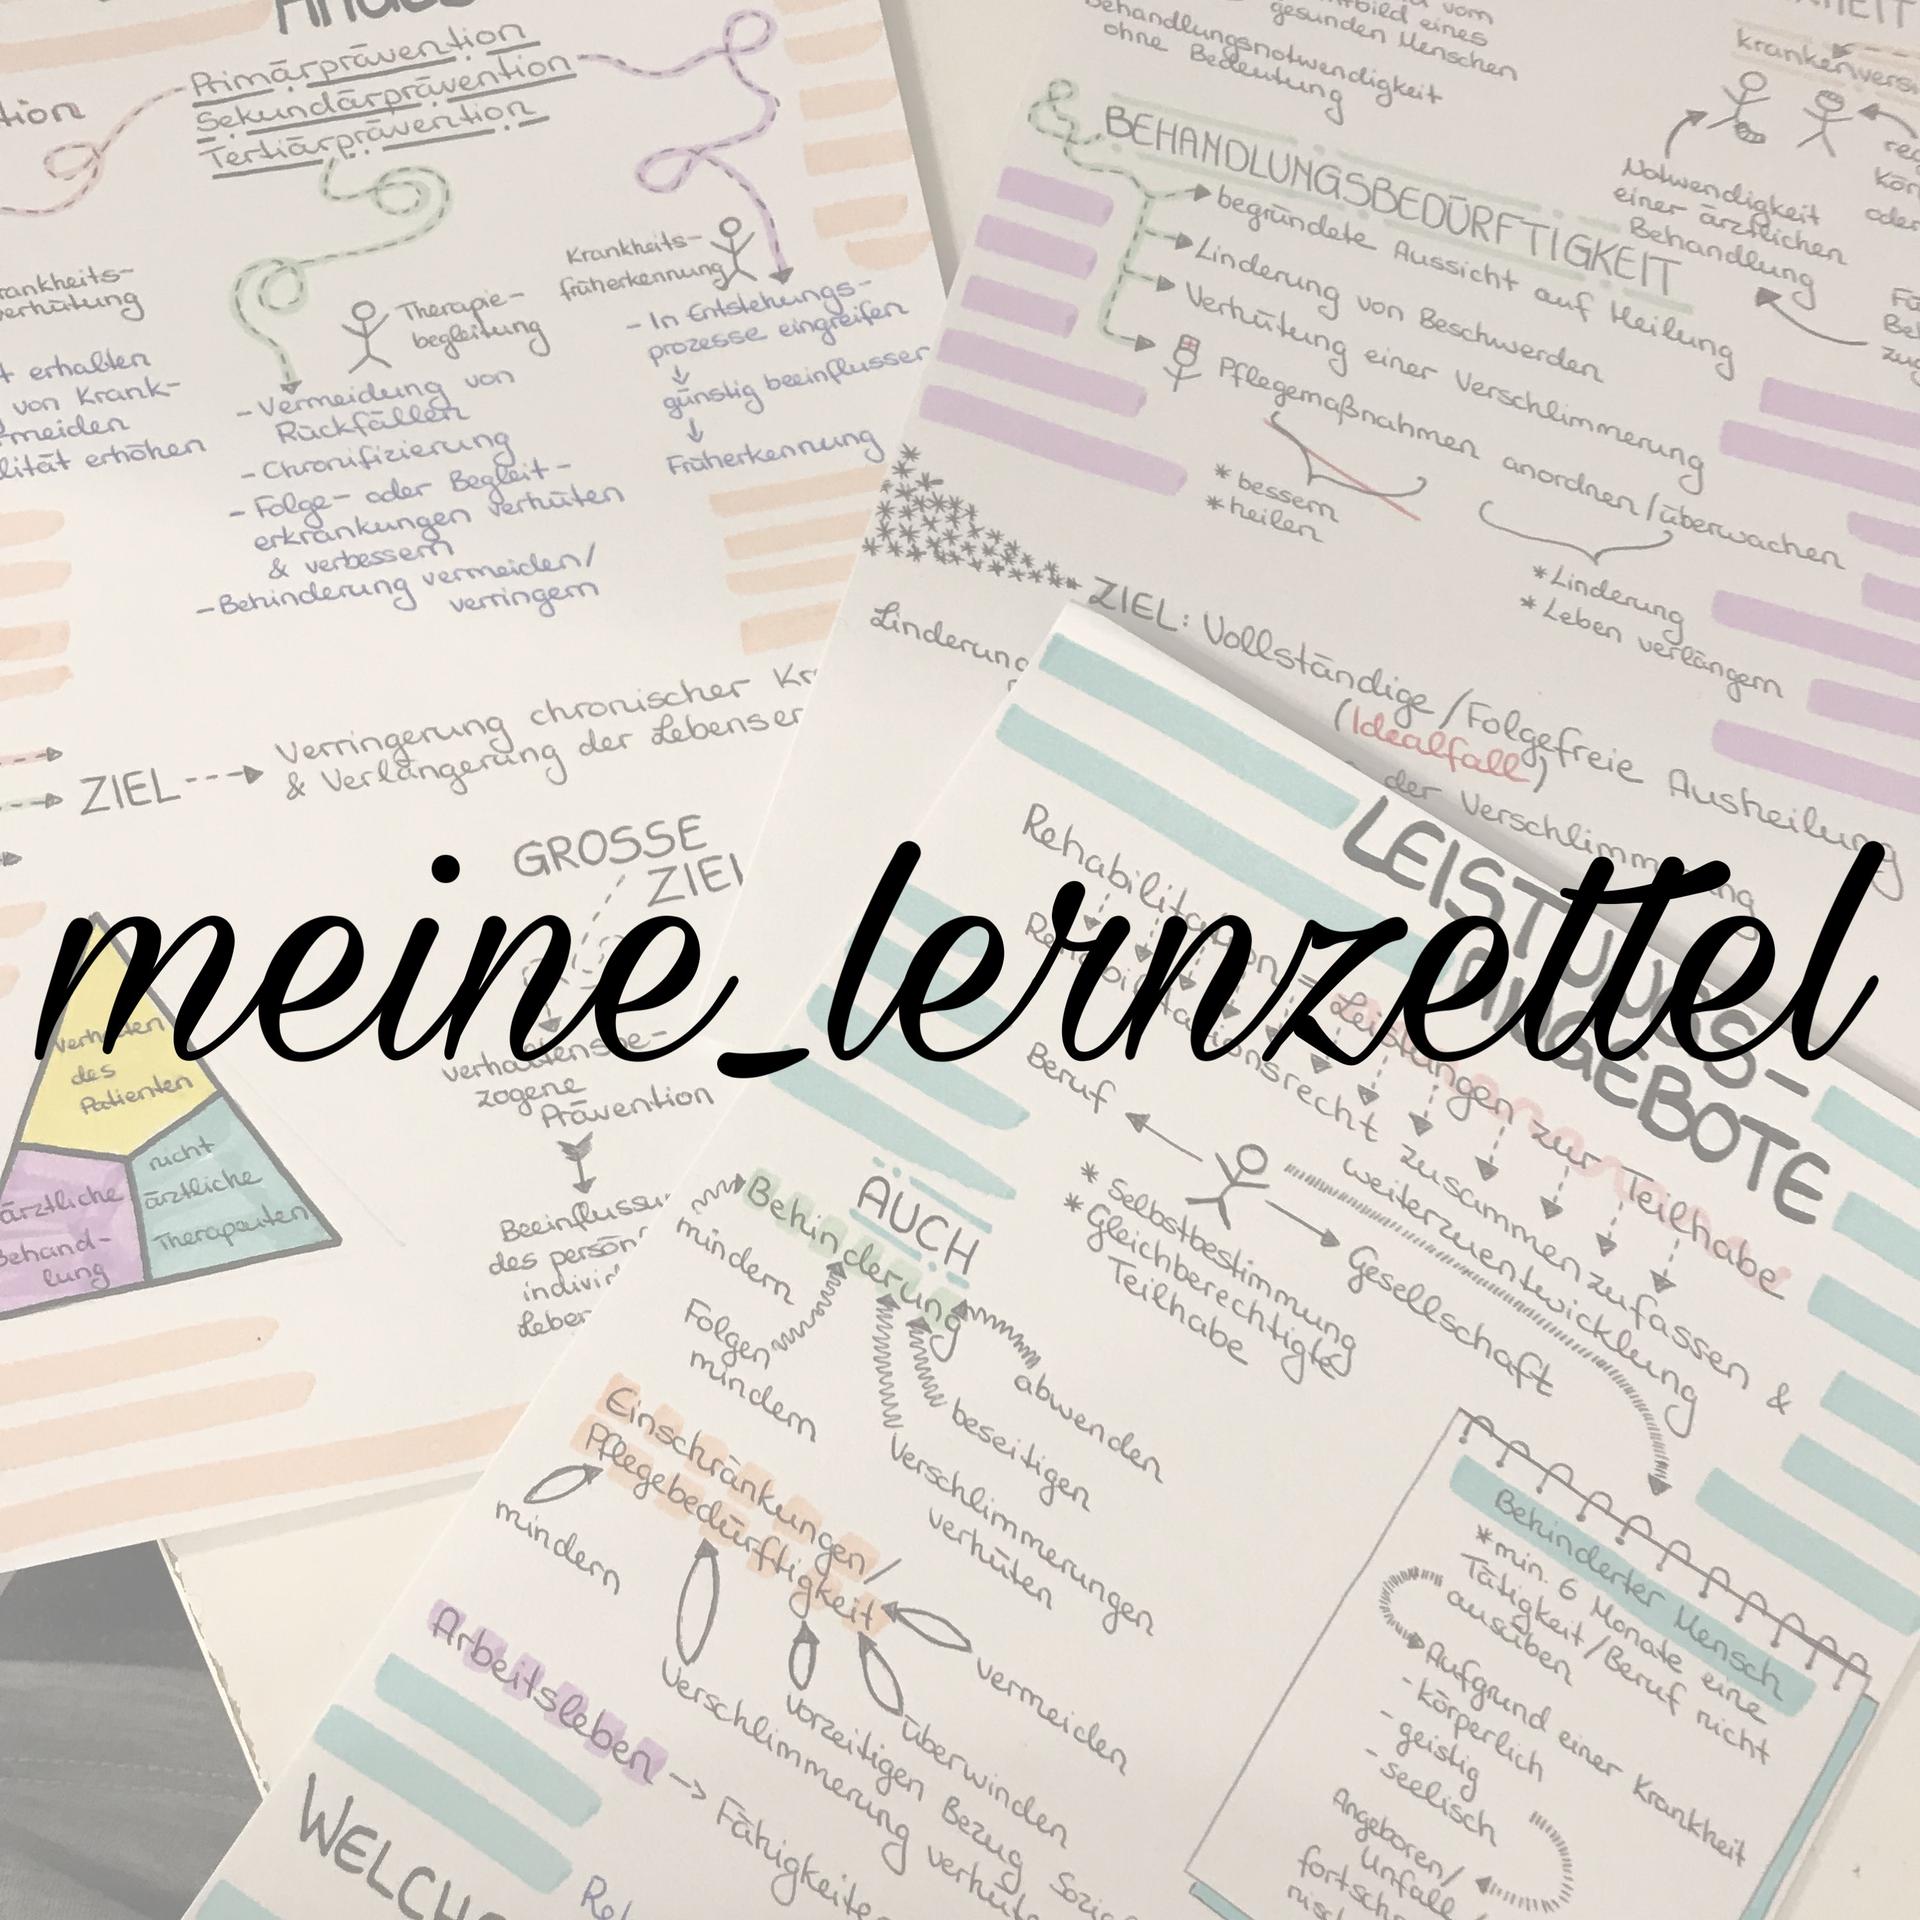 tion
Primärprävention
Sekundärprävention
Tertiärprävention
Krankheits-
früherkennung
- In Entstehungs-
prozesse eingreifen
günstig beeinflussen
Früherkennung
Therapie-
begleitung
- Vermeidung von
Rückfällen
- Chronifizierung
- Folge- oder Begleit-
erkrankungen verhüten
& verbessern
- Behinderung vermeiden/
verringern
rankheits-
erhütung
erhalten
von Krank-
meiden
lität erhöhen
ZIEL
Verringerung chronischer Kr
& Verlängerung der Lebenser
GROSSE
ZIEL
verhaltensbe-
zogene
Prävention
Beeinflussu
des persön
indivi
Leben
Verhalten
des
Patienten
ärztliche
Behand-
lung
nicht
ärztliche
Therapeuten
vom
bild eines
gesunden Menschen
Behandlungsnotwendigkeit
ohne Bedeutung
BEHANDLUNGSBEDÜRFTIGKEIT
begründete Aussicht auf Heilung
Linderung von Beschwerden
Verhütung einer Verschlimmerung
Pflegemaßnahmen anordnen/überwachen
* bessern
* heilen
* Linderung
* Leben verlängern
Krankenversi
Notwendigkeit
einer ärztlichen
Behandlung
oder
ZIEL: Vollständige/Folgefreie Ausheilung
(Idealfall)
Linderung
der Verschlimmerung
meine_lernzettel
LEISTUNGS-
ANGEBOTE
Rehabilitation = Leistungen zur Teilhabe
Rehabilitationsrecht zusammenzufassen &
weiterzuentwicklung
Beruf
Gesellschaft
* Selbstbestimmung
* Gleichberechtigte
Teilhabe
AUCH
Behinderung
mindern
Folgen
mindern
abwenden
beseitigen
Verschlimmerungen
verhüten
Einschränkungen/
Pflegebedürftigkeit
mindern
vermeiden
überwinden
vorzeitigen Bezug Sozia
Verschlimmerung verhüte
Arbeitsleben -> Fähigkeite
WELCHE
Behinderter Mensch
* min. 6 Monate eine
Tätigkeit/Beruf nicht
ausüben
Aufgrund einer Krankheit
- körperlich
- geistig
- seelisch
Angeboren/
Unfall/
fortsch